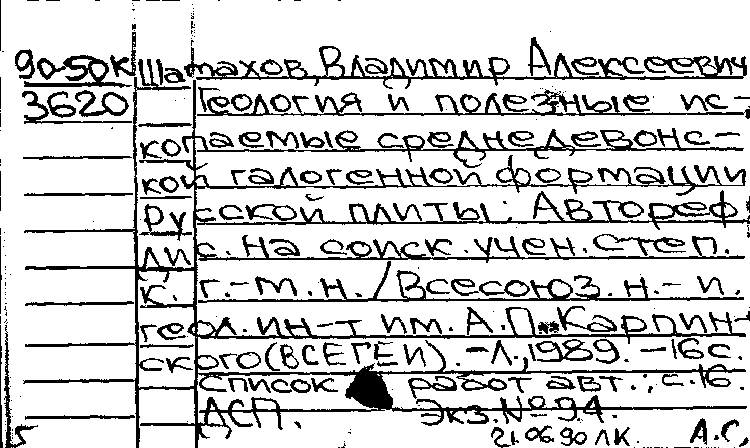 90-50К Шатахов, Владимир Алексеевич
3620 Геология и полезные ис-
копаемые среднедевонс-
кой галогенной формации
Русской плиты: Автореф.
дис. на соиск. учен. степ.
к. г.-м. н. / Всесоюз. н.-и.
геол. ин-т им. А.П. Карпин-
ского (ВСЕГЕИ). -Л., 1989. -16 с.
Список работ авт.: с. 16.
ДСП. Экз. №94.
5 21.06.90 ЛК. А.С.